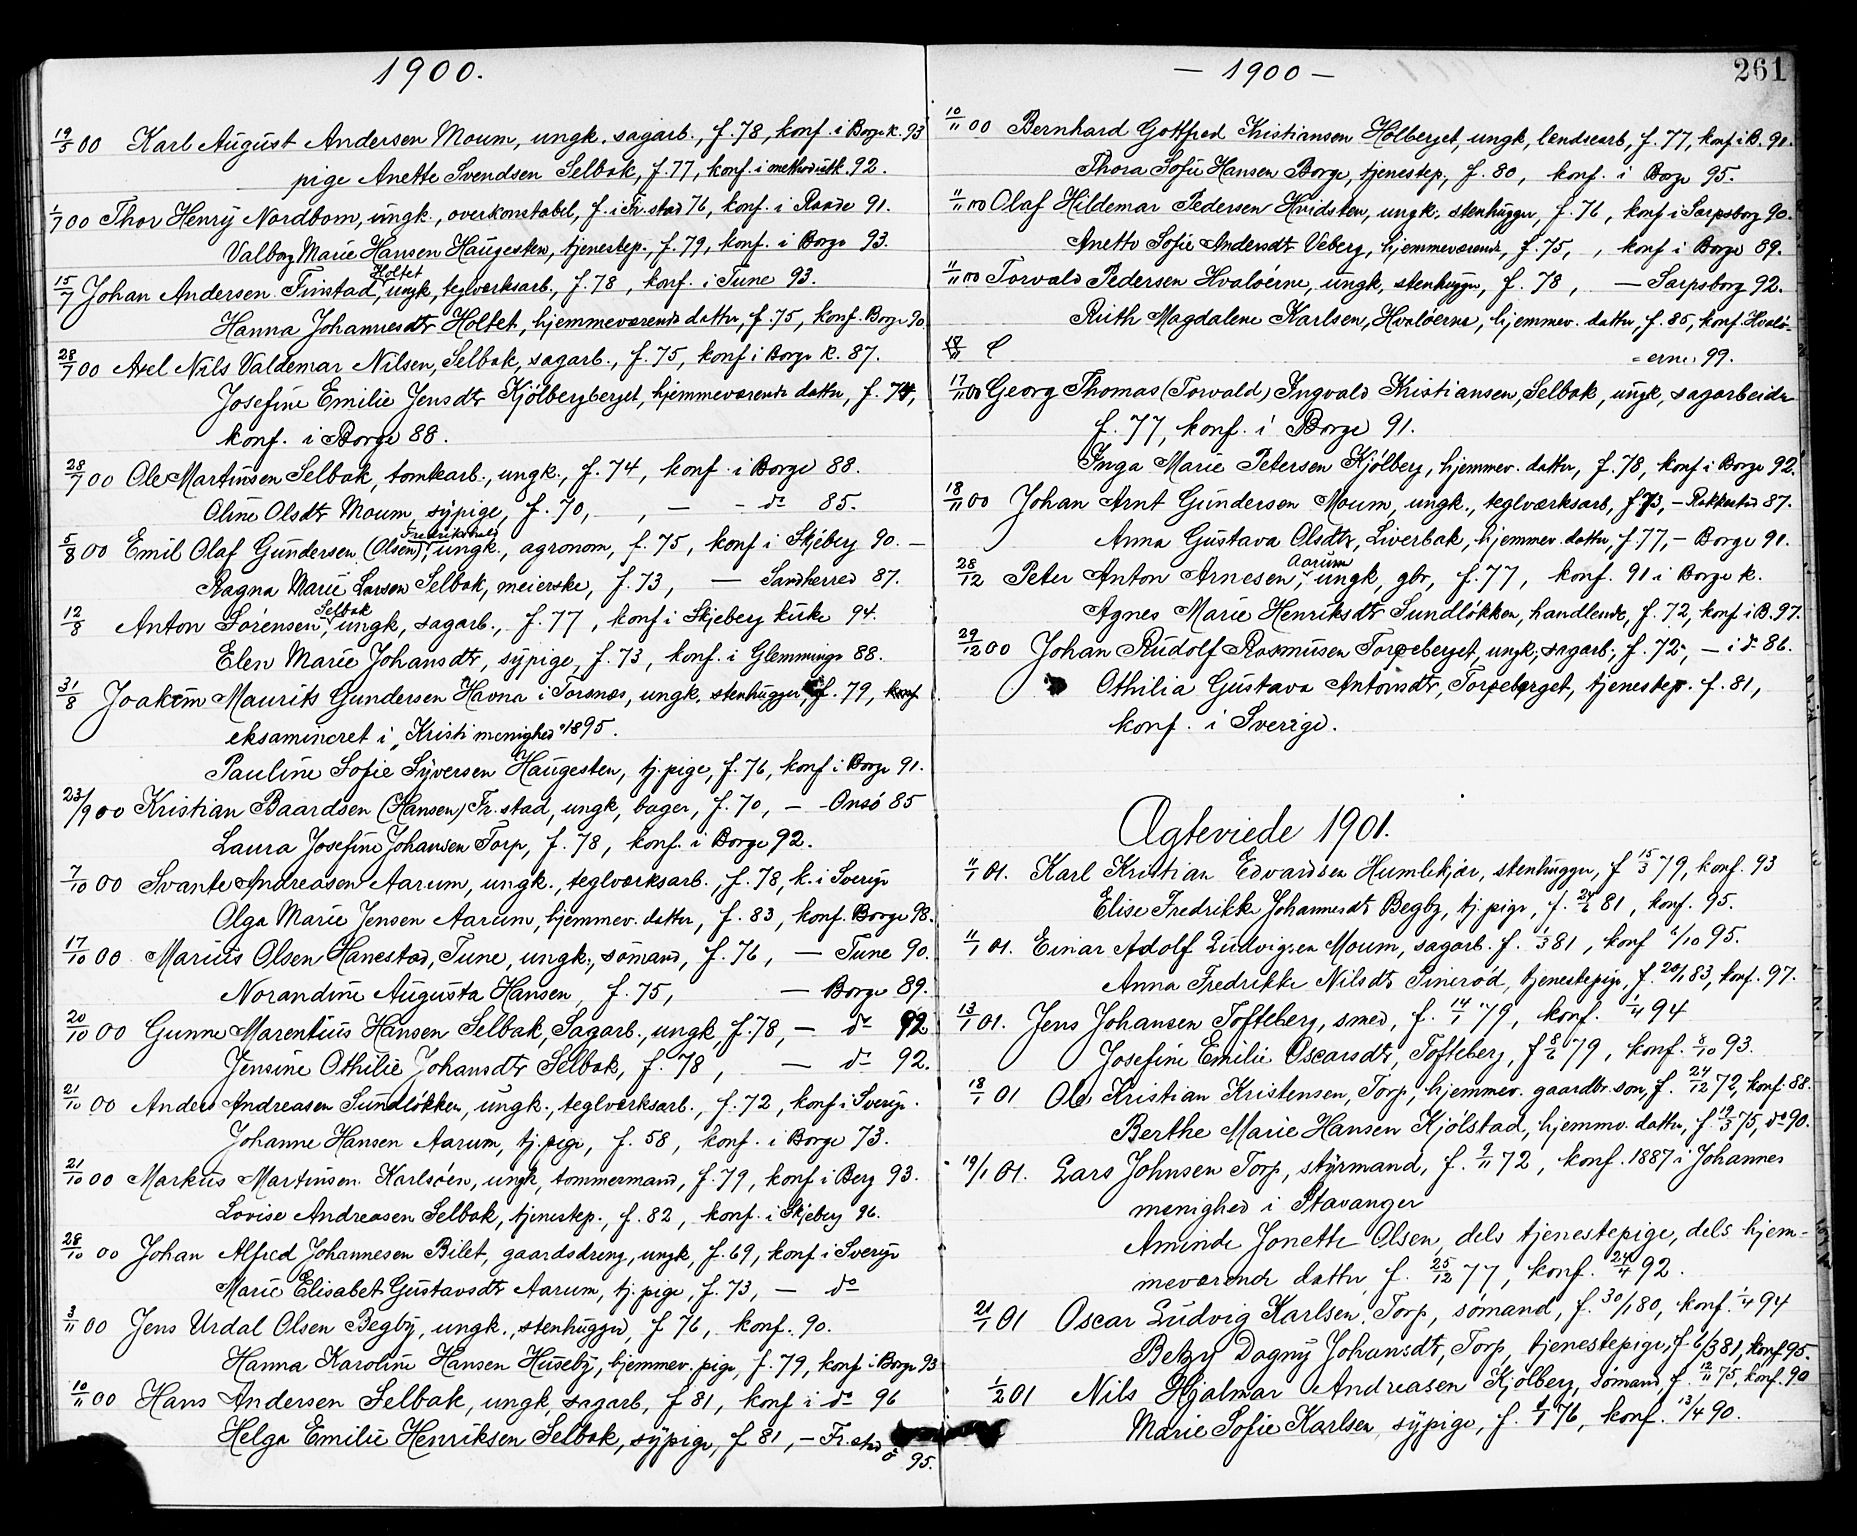 1900.
19/5 00 Karl August Andersen Moum, ungk. sagarb., f. 78, konf. i Borge k. 93
pige Anette Svendsen Selbak, f. 77, konf. i methodistk. 92.
1/7 00 Thor Henry Nordbom, ungk., overkonstabel, f. i Fr.stad 76, konf. i Raade 91.
Valborg Marie Hansen Haugesten, tjenestep., f. 79, konf. i Borge 93.
Holtet
15/7 Johan Andersen Finstad, ungk, teglværksarb., f. 78, konf. i Tune 93.
Hanna Johannesdtr Holtet, hjemmeværende datter, f. 75, konf. Borge 90.
28/7 00 Axel Nils Valdemar Nilsen, Selbak, sagarb., f. 75, konf i Borge k. 87.
Josefine Emilie Jensdtr Kjölbergberget, hjemmeværende datter, f. 74,
konf. i Borge 88.
28/7 00 Ole Martinsen Selbak, tomtearb., ungk., f. 74, konf. i Borge 88.
Oline Olsdtr Moum, sypige, f. 70, , — - do 85.
Fredrikshald
5/8 00 Emil Olaf Gundersen (Olsen), ungk., agronom, f. 75, konf i Skjeberg 90. –
Ragna Marie Larsen Selbak, meierske, f. 73, — Sandherred 87.
Selbak
12/8 Anton Sörensen, ungk, sagarb., f. 77, konf i Skjeberg kirke 94.
Elen Marie Johansdtr, sypige, f. 73, konf. i Glemminge 88.
31/8 Joakim Maurits Gundersen Havna i Torsnæs, ungk. stenhugger, f. 79, konf
eksamineret i „Kristi menighed“ 1895.
Pauline Sofie Syversen Haugesten, tj.pige, f. 76, konf i Borge 91.
23/9 00 Kristian Baardsen (Hansen) Fr.stad, ungk, bager, f. 70, — Onsö 85
Laura Josefine Johansen Torp, f. 78, konf. i Borge 92.
7/10 00 Svante Andreasen Aarum, ungk., teglværksarb., f. 78, k. i Sverige
Olga Marie Jensen Aarum, hjemmev. datter, f. 83, konf. Borge 98.
17/10 00 Marius Olsen Hanestad, Tune, ungk., sömand, f. 76, — Tune 90.
Norandine Augusta Hansen, f. 75, — Borge 89.
20/10 00 Gunne Marentius Hansen Selbak, Sagarb., ungk, f. 78, — do 92
Jensine Othilie Johansdtr Selbak, f. 78, — do 92.
21/10 00 Anders Andreasen Sundlökken, ungk., teglværksarb., f. 72, konf i Sverige.
Johanne Hansen Aarum, tj.pige, f. 58, konf. i Borge 73.
21/10 00 Markus Martinsen Karlsöen, ungk, tommermand, f. 79, konf i Berg 93.
Lovise Andreasen Selbak, tjenestep., f. 82, konf. i Skjeberg 96.
28/10 00 Johan Alfred Johannesen Bilet, gaardsdreng, ungk, f. 69, konf i Sverige
Marie Elisabet Gustavsdtr Aarum, tj.pige, f. 73, — do
3/11 00 Jens Urdal Olsen Begby, ungk., stenhugger, f 76, konf. 90.
Hanna Karoline Hansen Huseby, hjemmev. pige, f. 79, konf i Borge 93
10/11 00 Hans Andersen Selbak, ungk, sagarb, f 81, konf i do 96
Helga Emilie Henriksen Selbak, sypige, f 81, – Fr.stad
95.
— 1900 — 261
10/11 00 Bernhard Gottfred Kristiansen Holberget, ungk, lendsearb, f. 77, konf i B. 91.
Thora Sofie Hansen Borge, tjenestep., f. 80, konf. i Borge 95.
11/11 00 Olaf Hildemar Pedersen Hvidsten, ungk. stenhugger, f. 76, konf i Sarpsborg 90.
Anette Sofie Andersdtr Veberg, hjemmeværende, f. 75, , konf i Borge 89.
11/11 00 Torvald Pedersen Hvaloerne, ungk, stenhugger, f. 78, — Sarpsborg 92.
Ruth Magdalene Karlsen, Hvaloerne, hjemmev. datter, f. 85, konf. Hvalö-
18/11
erne 99.
17/11 00 Georg Thomas (Torvald) Ingvald Kristiansen, Selbak, ungk, sagarbeider
f. 77, konf. i Borge 91.
Inga Marie Petersen Kjölberg, hjemmev. datter, f. 78, konf i Borge 92.
18/11 00 Johan Arnt Gundersen Moum, ungk., teglværksarb, f. 73, – Rakkestad 87.
Anna Gustava Olsdtr, Liverbak, hjemmev. datter, f 77, – Borge 91.
Aarum
28/12 Peter Anton Arnesen, ungk, gbr, f. 77, konf. 91 i Borge k.
Agnes Marie Henriksdtr Sundlökken, handlende, f. 72, konf i B. 97.
29/12 00 Johan Rudolf Rasmusen Torpeberget, ungk., sagarb., f. 72, — i do 86.
Othilia Gustava Antonsdtr, Torpeberget, tjenestep. f. 81,
konf. i Sverige.
Ægteviede 1901.
11/1 01. Karl Kristian Edvardsen Humlekjær, stenhugger, f 15/3 79, konf. 93
Elise Fredrikke Johannesdtr Begby, tj.pige, f. 24/6 81, konf. 95.
11/1 01. Einar Adolf Ludvigsen Moum, sagarb. f. 1/3 81, konf 6/10 95.
Anna Fredrikke Nilsdtr Pinerød, tjenestepige, f. 20/1 83, konf. 97.
13/1 01. Jens Johansen Tofteberg, smed, f. 14/1 79, konf. 1/4 94
Josefine Emilie Oscarsdtr, Tofteberg, f 8/2 79, konf. 8/10 93.
18/1 01 Ole Kristian Kristensen, Torp, hjemmev. gaardbr. son, f. 24/12 72, konf. 88.
Berthe Marie Hansen Kjölstad, hjemmev. datter, f. 19/3 75, do 90.
19/1 01. Lars Johnsen Torp, styrmand, f. 9/11 72, konf. 1887 i Johannes
menighed i Stavanger
Aminde Jonette Olsen, dels tjenestepige, dels hjem-
meværende datter, f. 25/12 77, konf. 24/4 92.
21/1 01 Oscar Ludvig Karlsen, Torp, sömand, f. 30/1 80, konf. 1/4 94
Betzy Dagny Johansdtr, Torp, tjenestepige, f. 6/3 81, konf 95.
1/2 01 Nils Hjalmar Andreasen Kjölberg, sömand, f. 12/11 75, konf. 90
Marie Sofie Karlsen, sypige, f. 8/1 76, konf. 13/4 90.